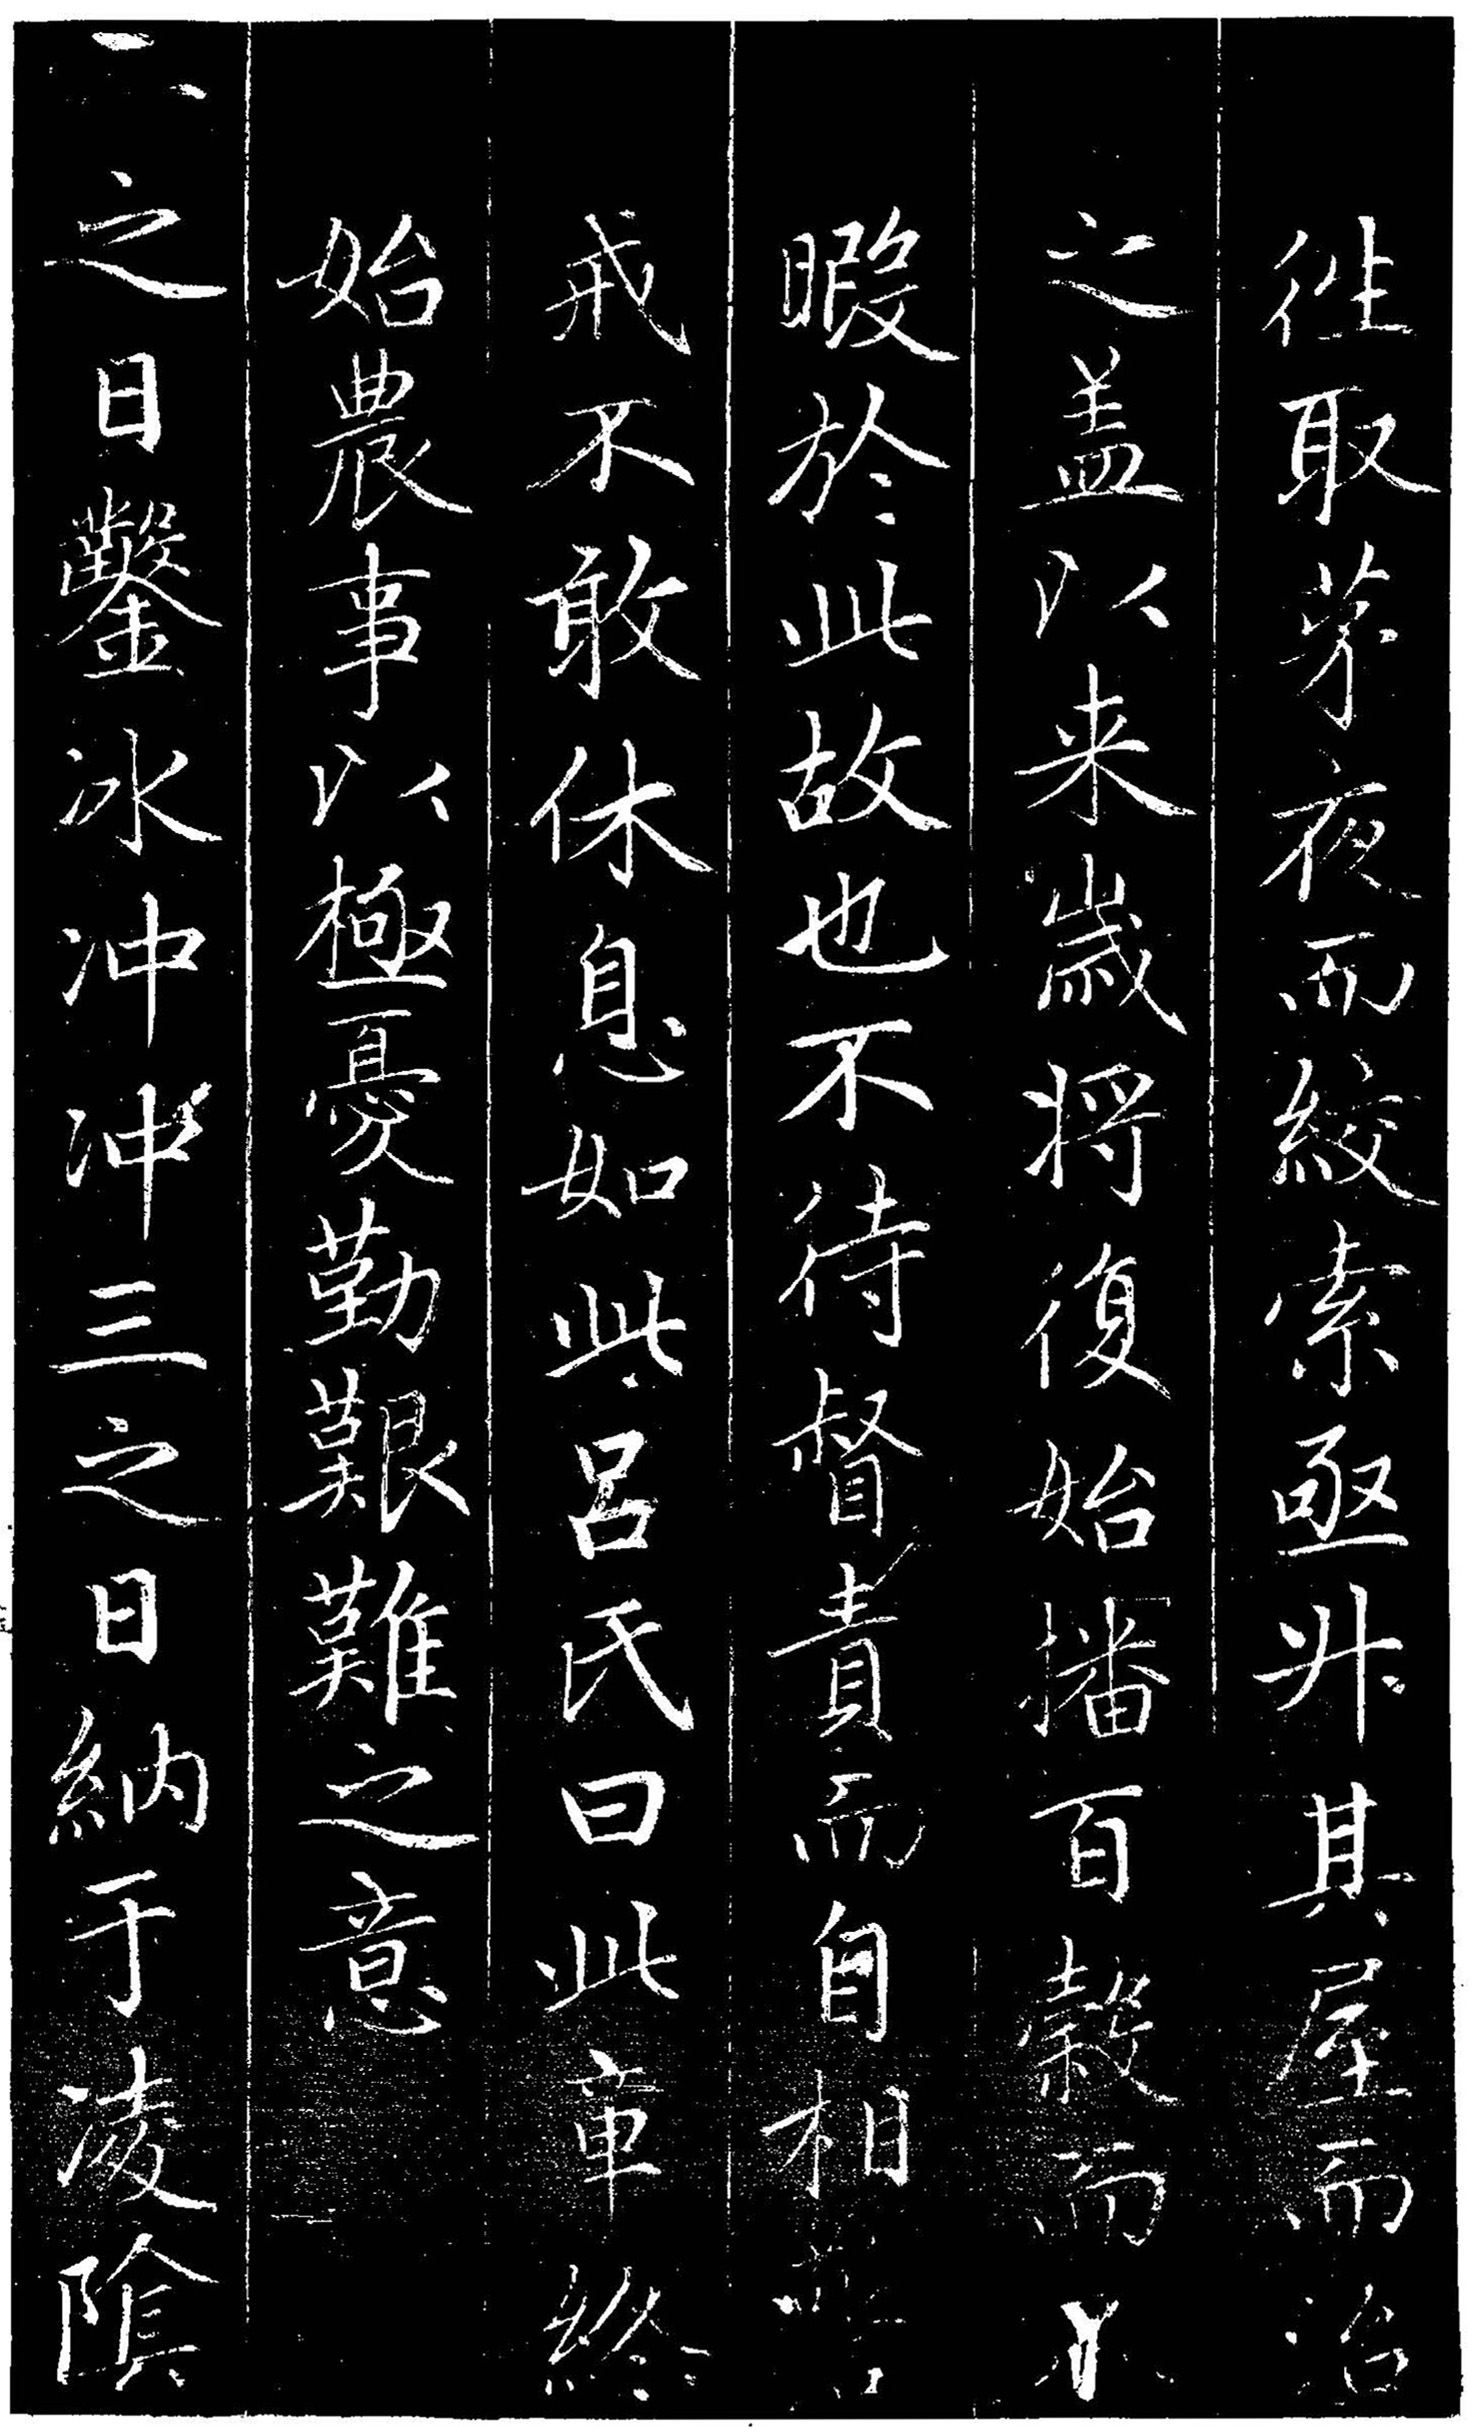 徃取茅夜而絞索亟升其屋而治
之盖以来歲将復始播百穀而不
暇於此故也不待督責而自相警
戒不敢休息如此呂氏曰此章終
始農事以極憂勤艱難之意
二之日鑿冰冲冲三之日納于凌陰